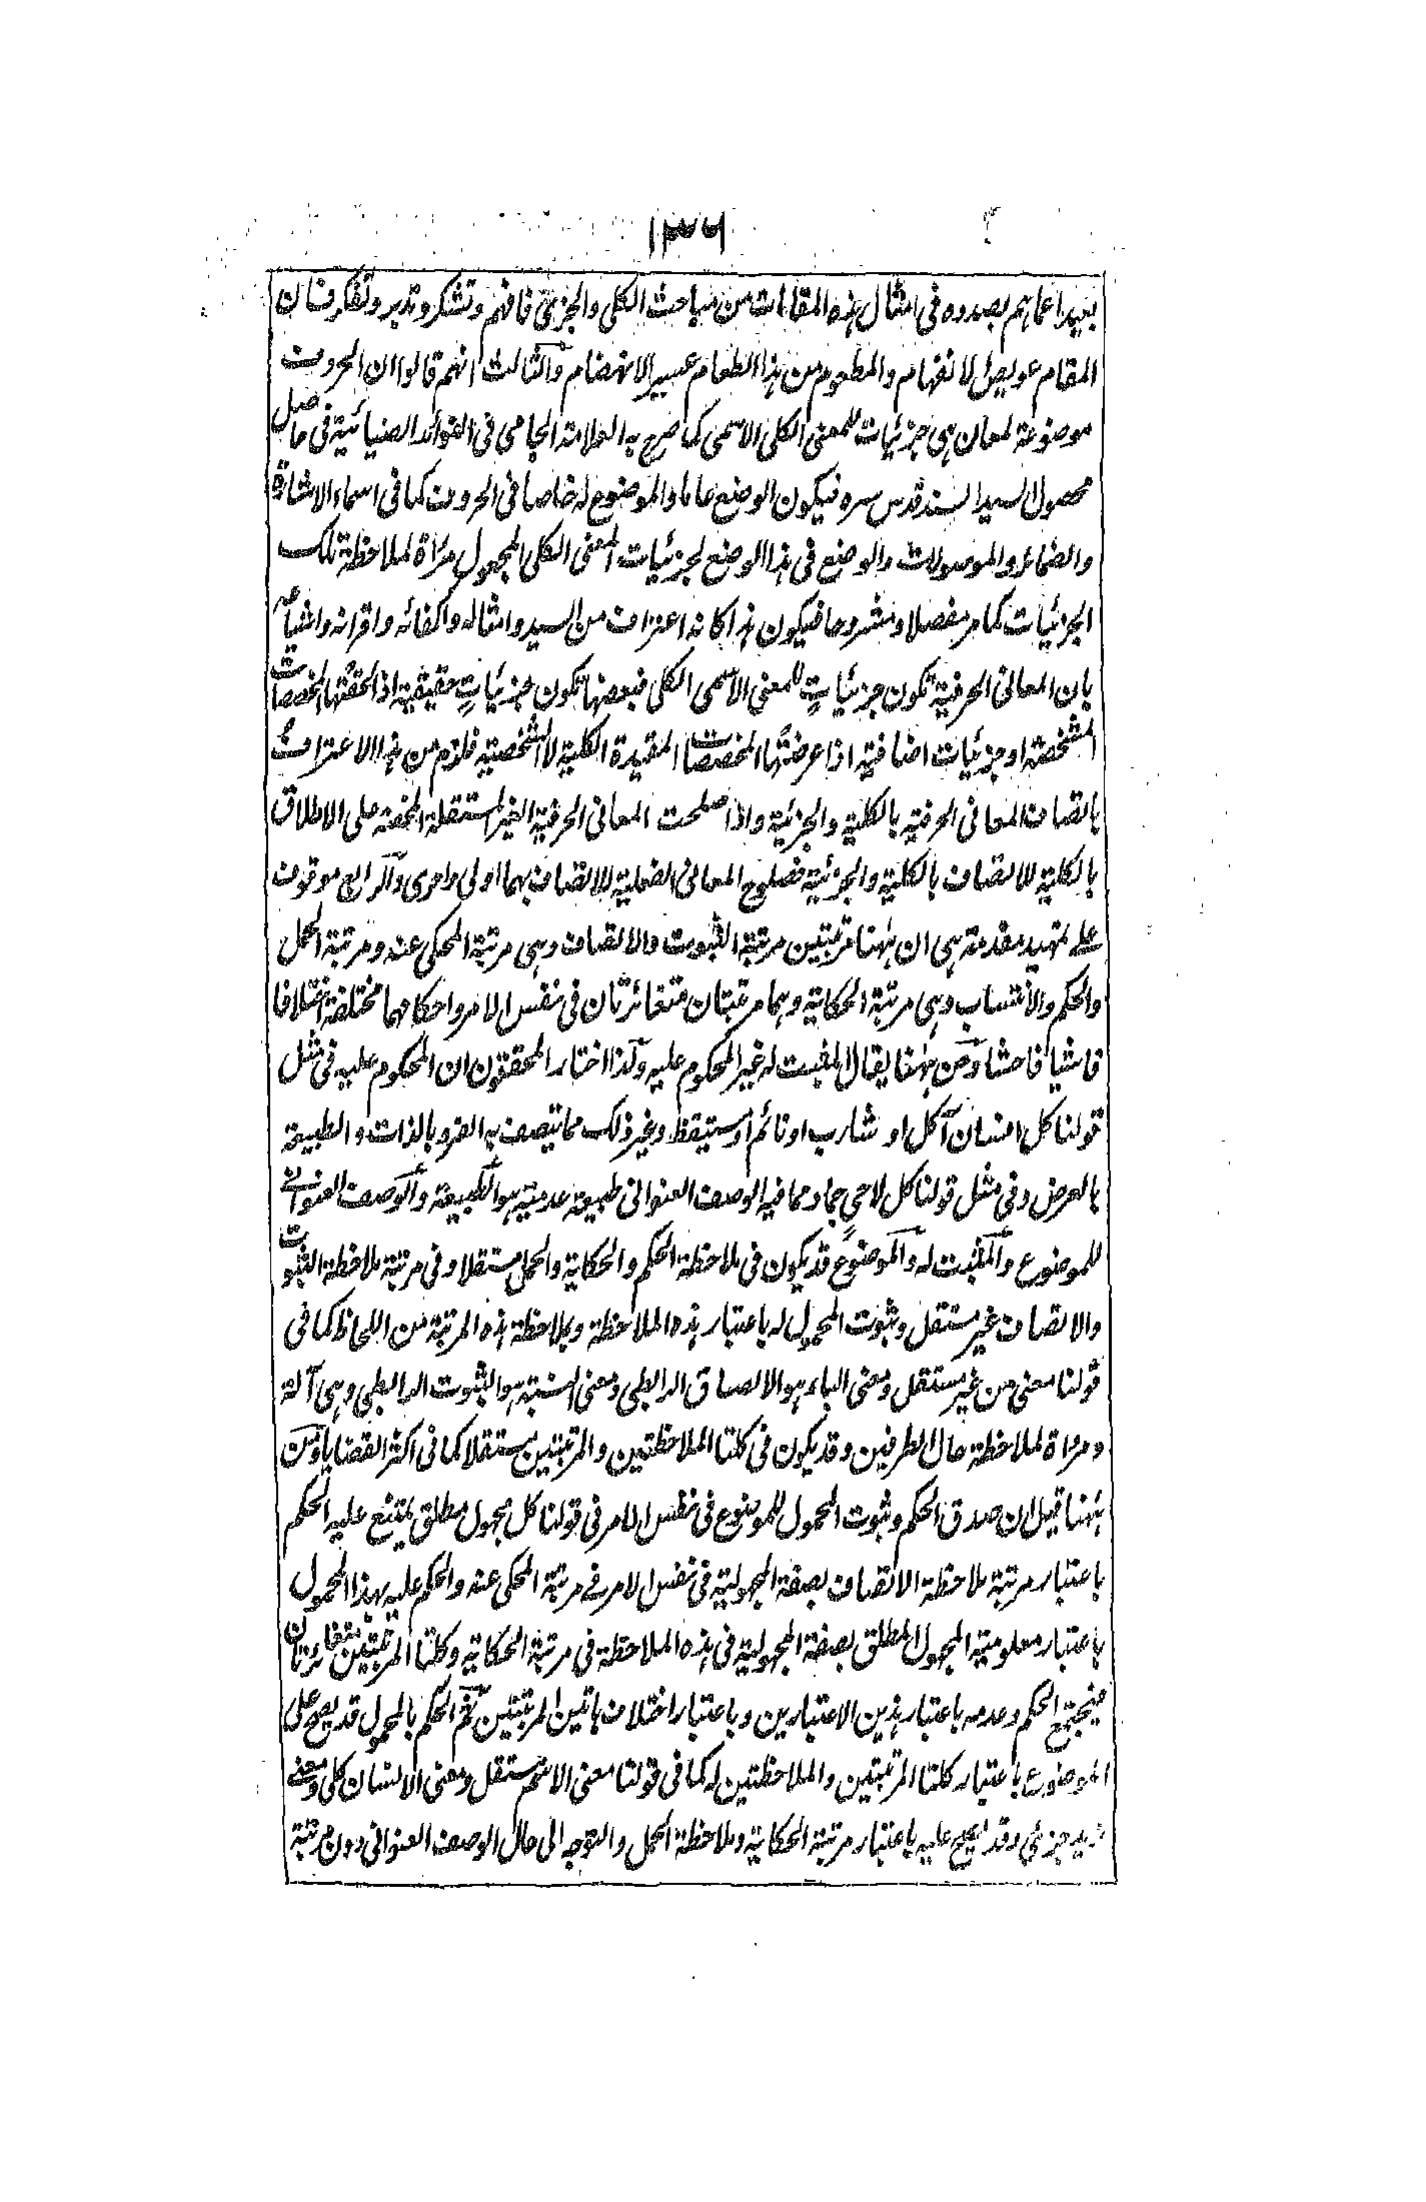 ١٣٦
بعيدا عما هم بصدوه فى امثال هذه المقامات من مباحث الكلى والجزئى فافهم وتشكر وتدبر وتفكر فان
المقام عويص الانفهام والمطعوم من هذا الطعام عسير الانهضام والثالث انهم قالوا ان الحروف
موضوعة لمعان هى جزئيات للمعنى الكلى الاسمى كما صرح به العلامة الجامى فى الفوائد الضيائية فى حاصل
محصول السيد السند قدس سره فيكون الوضع عاما والموضوع له خاصا فى الحروف كما فى اسماء الاشارة
والضمائر والموصولات والوضع فى هذا الوضع لجزئيات المعنى الكلى المجعول مرآة لملاحظة تلك
الجزئيات كما مر مفصلا ومشروحا فيكون هذا كانه اعتراف من السيد وامثاله واكفائه واقرانه واشياعه
بان المعانى الحرفية تكون جزئيات للمعنى الاسمى الكلى فبعضها تكون جزئيات حقيقية اذا لحقتها المخصصات
المشخصة او جزئيات اضافية اذا عرضتها المخصصات المقيدة الكلية لا الشخصية فلزم من هذا الاعتراف
باتصاف المعانى الحرفية بالكلية والجزئية واذا صلحت المعانى الحرفية الغير المستقلة المحضة على الاطلاق
بالكلية للاتصاف بالكلية والجزئية فصلوح المعانى الفعلية للاتصاف بهما اولى واحرى والرابع موقوف
على تمهيد مقدمة هى ان ههنا مرتبتين مرتبة الثبوت والاتصاف وهى مرتبة المحكى عنه ومرتبة الحمل
والحكم والانتساب وهى مرتبة الحكاية وهما مرتبتان متغائرتان فى نفس الامر واحكامهما مختلفة اختلافا
فاشيا فاحشا ومن ههنا يقال المثبت له غير المحكوم عليه ولذا اختار المحققون ان المحكوم عليه فى مثل
قولنا كل انسان آكل او شارب او نائم او مستيقظ وغير ذلك مما يتصف به الفرد بالذات والطبيعة
بالعرض وفى مثل قولنا كل لاحى جماد مما فيه الوصف العنوانى طبيعة عدمية هو الطبيعة والوصف العنوانى
للموضوع والمثبت له والموضوع قد يكون فى ملاحظة الحكم والحكاية والحمل مستقلا وفى مرتبة ملاحظة الثبوت
والاتصاف غير مستقل وثبوت المحمول له باعتبار هذه الملاحظة وبملاحظة هذه المرتبة من اللحاظ كما فى
قولنا معنى من غير مستقل ومعنى الباء هو الالصاق الرابطى ومعنى النسبة هو الثبوت الرابطى وهى آلة
ومرآة لملاحظة حال الطرفين وقد يكون فى كلتا الملاحظتين والمرتبتين مستقلا كما فى اكثر القضايا ومن
ههنا قيل ان صدق الحكم وثبوت المحمول للموضوع فى نفس الامر فى قولنا كل مجهول مطلق يمتنع عليه الحكم
باعتبار مرتبة ملاحظة الاتصاف بصفة المجهولية فى نفس الامر فى مرتبة المحكى عنه والحكم عليه بهذا المحمول
باعتبار معلومية المجهول المطلق بصفة المجهولية فى هذه الملاحظة فى مرتبة الحكاية وكلتا المرتبتين متغائرتان
فيجتمع الحكم وعدمه باعتبار هذين الاعتبارين وباعتبار اختلاف هاتين المرتبتين ثم الحكم بالمحمول قد يصح على
الموضوع باعتبار كلتا المرتبتين والملاحظتين له كما فى قولنا معنى الاسم مستقل ومعنى الانسان كلى ومعنى
زيد جزئى وقد يصح عليه باعتبار مرتبة الحكاية وملاحظة الحمل والتوجه الى حال الوصف العنوانى دون مرتبة